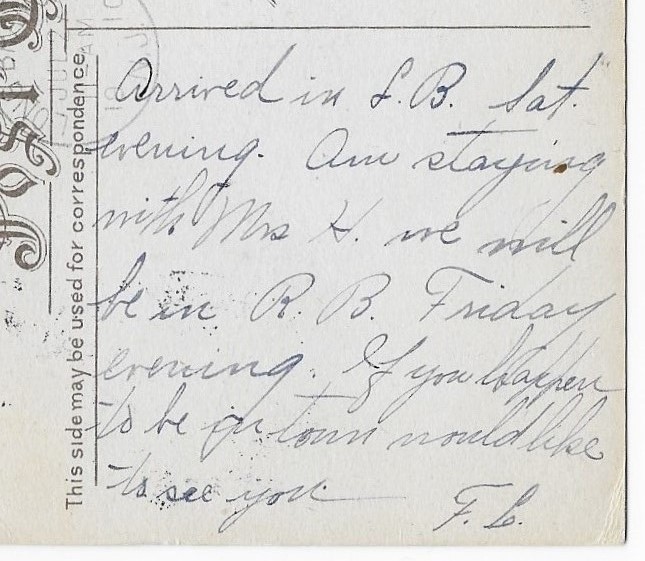 Arrived in L.B. Sat.
evening. Am staying
with Mrs H. we will
be in R. B. Friday
evening. If you happen
to be in town would like
to see you
F. L.
This side may be used for correspondence
JUL
AM